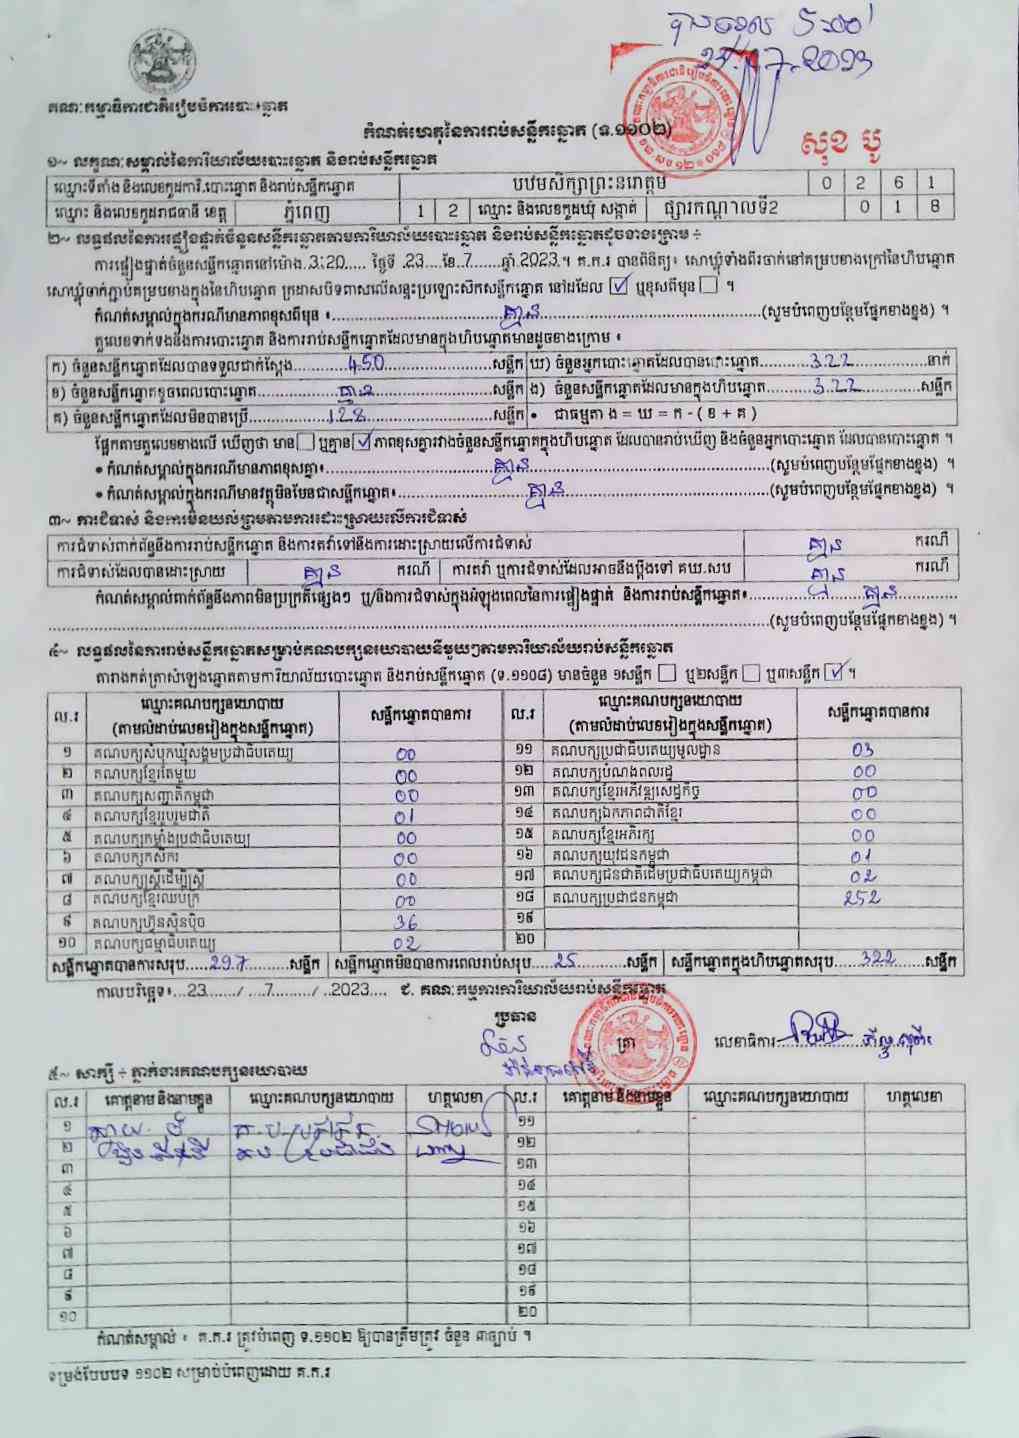 បានទទួល ៥:០០'
23.7.2023
សុខ បូ
គណៈកម្មាធិការជាតិរៀបចំការបោះឆ្នោត
កំណត់ហេតុនៃការរាប់សន្លឹកឆ្នោត (ទ.១១០២)
១~ លក្ខណៈសម្គាល់នៃការិយាល័យបោះឆ្នោត និងរាប់សន្លឹកឆ្នោត
ឈ្មោះទីតាំង និងលេខកូដការិ.បោះឆ្នោត និងរាប់សន្លឹកឆ្នោត បឋមសិក្សាព្រះនរោត្តម 0 2 6 1
ឈ្មោះ និងលេខកូដរាជធានី ខេត្ត ភ្នំពេញ 1 2 ឈ្មោះ និងលេខកូដឃុំ សង្កាត់ ផ្សារកណ្ដាលទី2 0 1 8
២~ លទ្ធផលនៃការផ្ទៀងផ្ទាត់ចំនួនសន្លឹកឆ្នោតតាមការិយាល័យបោះឆ្នោត និងរាប់សន្លឹកឆ្នោតដូចខាងក្រោម ÷
ការផ្ទៀងផ្ទាត់ចំនួនសន្លឹកឆ្នោតនៅម៉ោង 3:20..... ថ្ងៃទី 23 ....ខែ.7......ឆ្នាំ 2023.។ គ.ក.រ បានពិនិត្យ៖ សោឃ្លុំទាំងពីរចាក់នៅគម្របខាងក្រៅនៃហិបឆ្នោត
សោឃ្លុំចាក់ភ្ជាប់គម្របខាងក្នុងនៃហិបឆ្នោត ក្រដាសបិទពាសលើសន្ទះប្រឡោះស៊កសន្លឹកឆ្នោត នៅដដែល ☑ ឬខុសពីមុន ☐ ។
កំណត់សម្គាល់ក្នុងករណីមានភាពខុសពីមុន ៖........គ្មាន........(សូមបំពេញបន្ថែមផ្នែកខាងខ្នង) ។
តួលេខទាក់ទងនឹងការបោះឆ្នោត និងការរាប់សន្លឹកឆ្នោតដែលមានក្នុងហិបឆ្នោតមានដូចខាងក្រោម ៖
ក) ចំនួនសន្លឹកឆ្នោតដែលបានទទួលជាក់ស្ដែង.......450.......សន្លឹក ឃ) ចំនួនអ្នកបោះឆ្នោតដែលបានបោះឆ្នោត.......322.......នាក់
ខ) ចំនួនសន្លឹកឆ្នោតខូចពេលបោះឆ្នោត.......គ្មាន.......សន្លឹក ង) ចំនួនសន្លឹកឆ្នោតដែលមានក្នុងហិបឆ្នោត.......322.......សន្លឹក
គ) ចំនួនសន្លឹកឆ្នោតដែលមិនបានប្រើ.......128.......សន្លឹក • ជាធម្មតា ង = ឃ = ក - ( ខ + គ )
ផ្អែកតាមតួលេខខាងលើ ឃើញថា មាន ☐ ឬគ្មាន ☑ ភាពខុសគ្នារវាងចំនួនសន្លឹកឆ្នោតក្នុងហិបឆ្នោត ដែលបានរាប់ឃើញ និងចំនួនអ្នកបោះឆ្នោត ដែលបានបោះឆ្នោត ។
• កំណត់សម្គាល់ក្នុងករណីមានភាពខុសគ្នា៖........គ្មាន........(សូមបំពេញបន្ថែមផ្នែកខាងខ្នង) ។
• កំណត់សម្គាល់ក្នុងករណីមានវត្ថុមិនមែនជាសន្លឹកឆ្នោត៖........គ្មាន........(សូមបំពេញបន្ថែមផ្នែកខាងខ្នង) ។
៣~ ការជំទាស់ និងការមិនយល់ព្រមតាមការដោះស្រាយលើការជំទាស់
ការជំទាស់ពាក់ព័ន្ធនឹងការរាប់សន្លឹកឆ្នោត និងការតវ៉ាទៅនឹងការដោះស្រាយលើការជំទាស់ គ្មាន ករណី
ការជំទាស់ដែលបានដោះស្រាយ គ្មាន ករណី ការតវ៉ា ឬការជំទាស់ដែលអាចនឹងប្ដឹងទៅ គឃ.សប គ្មាន ករណី
កំណត់សម្គាល់ពាក់ព័ន្ធនឹងភាពមិនប្រក្រតីផ្សេងៗ ឬ/និងការជំទាស់ក្នុងអំឡុងពេលនៃការផ្ទៀងផ្ទាត់ និងការរាប់សន្លឹកឆ្នោត៖........គ្មាន........
........(សូមបំពេញបន្ថែមផ្នែកខាងខ្នង) ។
៤~ លទ្ធផលនៃការរាប់សន្លឹកឆ្នោតសម្រាប់គណបក្សនយោបាយនីមួយៗតាមការិយាល័យរាប់សន្លឹកឆ្នោត
តារាងកត់ត្រាសំឡេងឆ្នោតតាមការិយាល័យបោះឆ្នោត និងរាប់សន្លឹកឆ្នោត (ទ.១១០៨) មានចំនួន ១សន្លឹក ☐ ឬ២សន្លឹក ☐ ឬ៣សន្លឹក ☑ ។
ល.រ ឈ្មោះគណបក្សនយោបាយ (តាមលំដាប់លេខរៀងក្នុងសន្លឹកឆ្នោត) សន្លឹកឆ្នោតបានការ ល.រ ឈ្មោះគណបក្សនយោបាយ (តាមលំដាប់លេខរៀងក្នុងសន្លឹកឆ្នោត) សន្លឹកឆ្នោតបានការ
១ គណបក្សសំបុកឃ្មុំសង្គមប្រជាធិបតេយ្យ 00 ១១ គណបក្សប្រជាធិបតេយ្យមូលដ្ឋាន 03
២ គណបក្សខ្មែរតែមួយ 00 ១២ គណបក្សបំណងពលរដ្ឋ 00
៣ គណបក្សសញ្ជាតិកម្ពុជា 00 ១៣ គណបក្សខ្មែរអភិវឌ្ឍសេដ្ឋកិច្ច 00
៤ គណបក្សខ្មែររួបរួមជាតិ 01 ១៤ គណបក្សឯកភាពជាតិខ្មែរ 00
៥ គណបក្សកម្លាំងប្រជាធិបតេយ្យ 00 ១៥ គណបក្សខ្មែរអភិរក្ស 00
៦ គណបក្សកសិករ 00 ១៦ គណបក្សយុវជនកម្ពុជា 01
៧ គណបក្សស្ត្រីដើម្បីស្ត្រី 00 ១៧ គណបក្សជនជាតិដើមប្រជាធិបតេយ្យកម្ពុជា 02
៨ គណបក្សខ្មែរឈប់ក្រ 00 ១៨ គណបក្សប្រជាជនកម្ពុជា 252
៩ គណបក្សហ៊្វុនស៊ិនប៉ិច 36 ១៩
១០ គណបក្សធម្មាធិបតេយ្យ 02 ២០
សន្លឹកឆ្នោតបានការសរុប.....297.......សន្លឹក សន្លឹកឆ្នោតមិនបានការពេលរាប់សរុប.....25.......សន្លឹក សន្លឹកឆ្នោតក្នុងហិបឆ្នោតសរុប.....322.......សន្លឹក
កាលបរិច្ឆេទ៖...23......./ ...7......../ ..2023.... ជ. គណៈកម្មការការិយាល័យរាប់សន្លឹកឆ្នោត
ប្រធាន
ត្រា
លេខាធិការ
៥~ សាក្សី ÷ ភ្នាក់ងារគណបក្សនយោបាយ
ល.រ គោត្តនាម និងនាមខ្លួន ឈ្មោះគណបក្សនយោបាយ ហត្ថលេខា ល.រ គោត្តនាម និងនាមខ្លួន ឈ្មោះគណបក្សនយោបាយ ហត្ថលេខា
១ ១១
២ ១២
៣ ១៣
៤ ១៤
៥ ១៥
៦ ១៦
៧ ១៧
៨ ១៨
៩ ១៩
១០ ២០
កំណត់សម្គាល់ ៖ គ.ក.រ ត្រូវបំពេញ ទ.១១០២ ឱ្យបានត្រឹមត្រូវ ចំនួន ៣ច្បាប់ ។
ទម្រង់បែបបទ ១១០២ សម្រាប់បំពេញដោយ គ.ក.រ